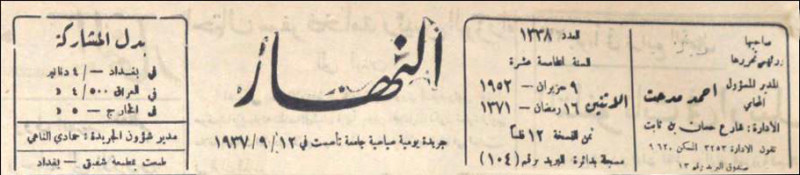 صاحبها
ورئيس تحريرها
المدير المسؤول
المحامي
احمد مدحت
الادارة: شارع حسان بن ثابت
تلفون الادارة ٣٢٥٣ السكن ٩٦٢٠
صندوق البريد رقم ١٣
العدد ١٣٣٨
السنة الخامسة عشرة
الاثنين
٩ حزيران — ١٩٥٢
١٦ رمضان — ١٣٧١
ثمن النسخة ١٢ فلساً
مسجلة بدائرة البريد برقم (١٠٤)
النهار
جريدة يومية سياسية جامعة تأسست في ١٢/٩/١٩٣٧
بدل المشاركة
في بغداد —/٤ دنانير
في العراق ٤/٥٠٠ د
في الخارج —/٥ د
مدير شؤون الجريدة: حمادي الناهي
طبعت بمطبعة شفيق — بغداد